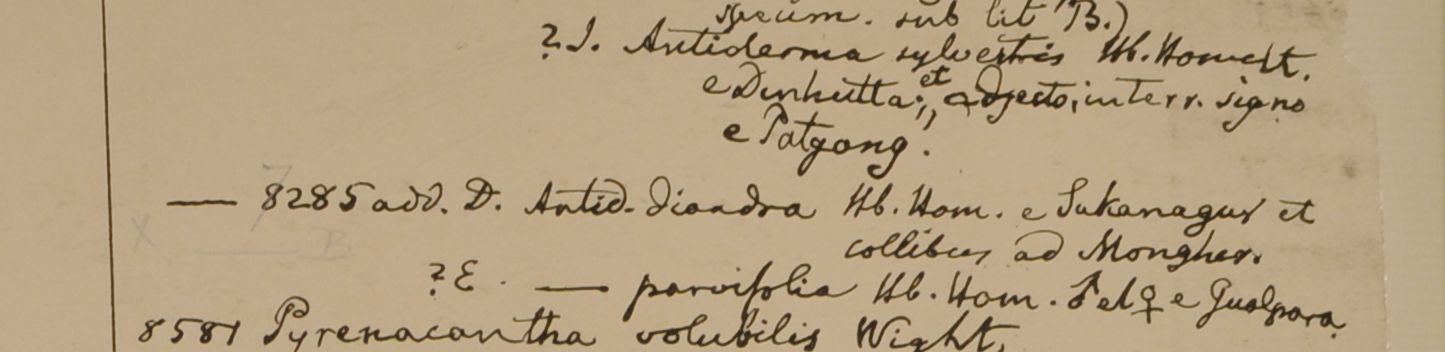 specim. sub lit B.)
?J. Antiderma sylvestris Hb. Hamilt.
e Dinhutta; et adjecto, interr. signo
e Patgong.
— 8285 add. D. Antid. diandra Hb. Ham. e Sukanagur et
collibus ad Mongher.
?E. — parvifolia Hb. Ham. Fel ♀ e Gualpara
8581 Pyrenacantha volubilis Wight.